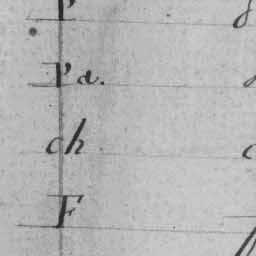 P
Pa.
ch
F